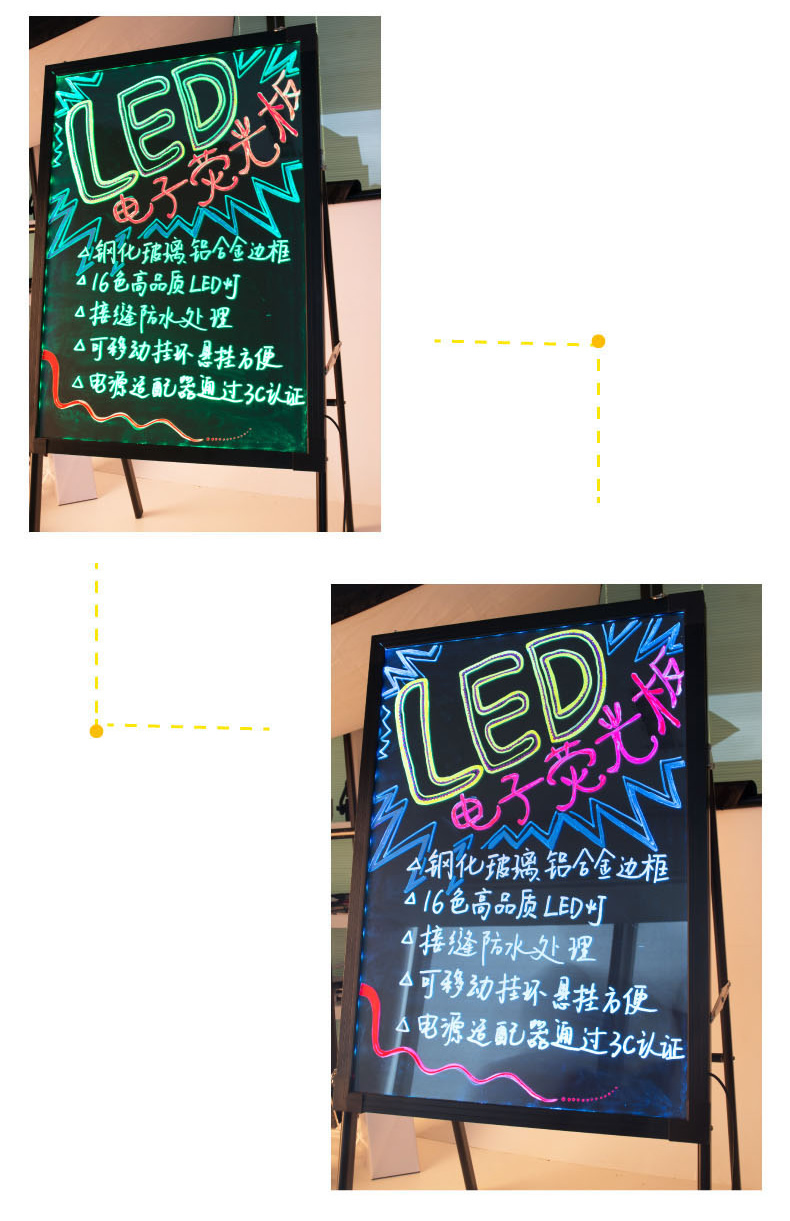 LED
电子荧光板
△钢化玻璃铝合金边框
△16色高品质LED灯
△接缝防水处理
△可移动挂环悬挂方便
△电源适配器通过3C认证
LED
电子荧光板
△钢化玻璃铝合金边框
△16色高品质LED灯
△接缝防水处理
△可移动挂环悬挂方便
△电源适配器通过3C认证